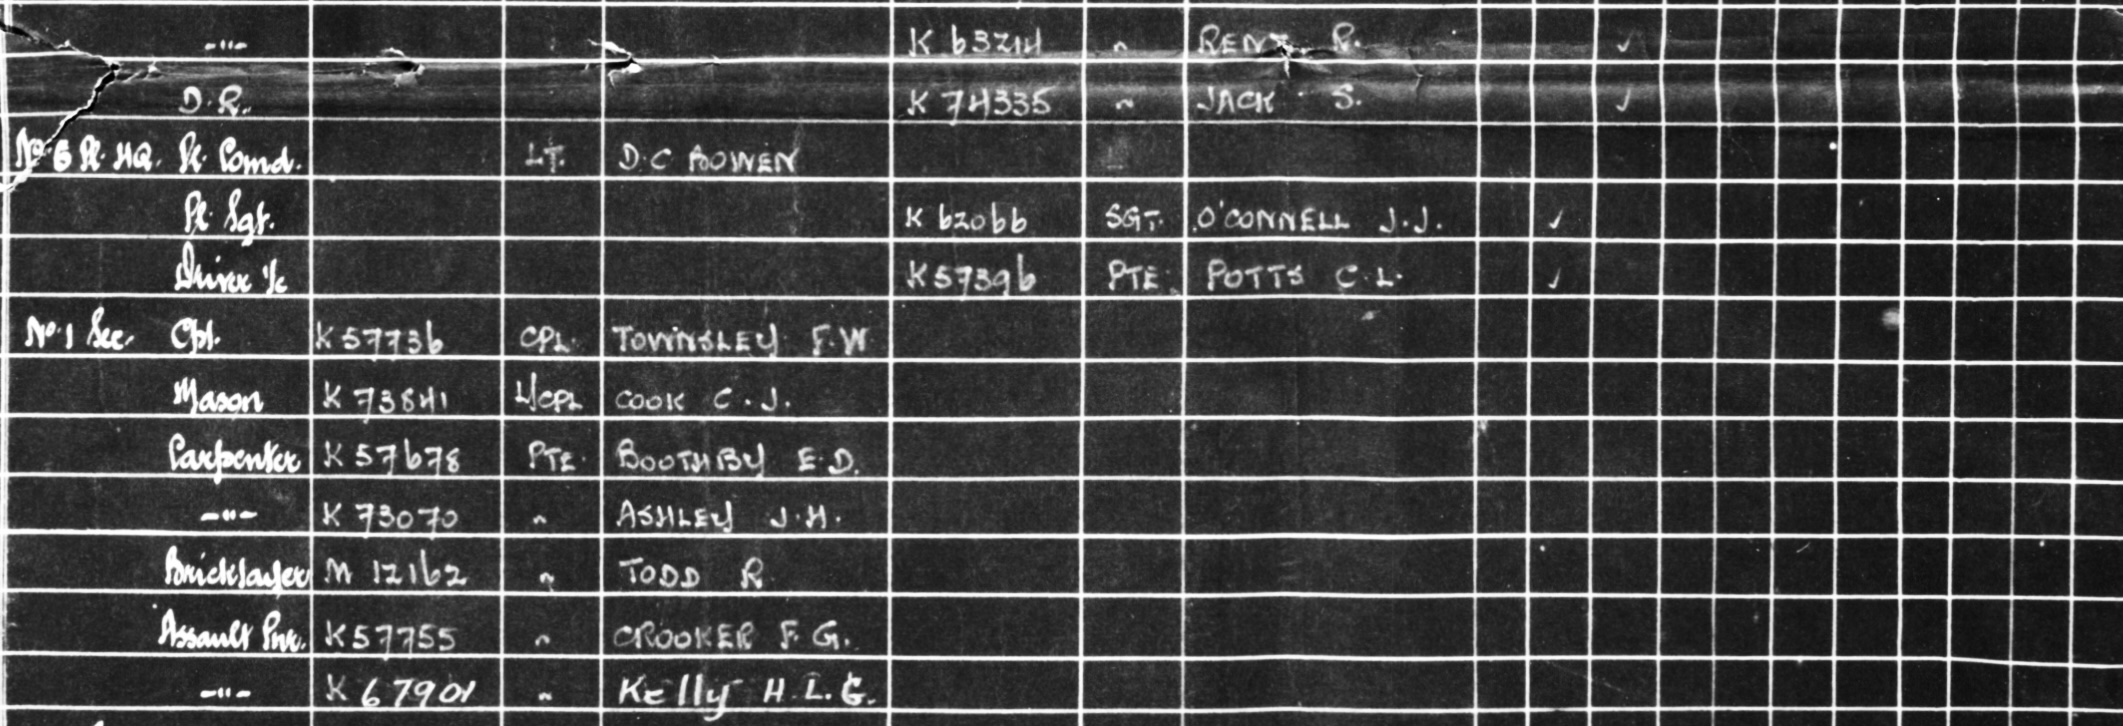 -"- K 63214 " RENT R. ✓
D.R. K 74335 " JACK S. ✓
No. 6 Pl. HQ. Pl. Comd. LT. D.C BOWEN
Pl. Sgt. K 62066 SGT. O'CONNELL J.J. ✓
Driver i/c K57396 PTE POTTS C.L. ✓
No. 1 Sec. Cpl. K57736 CPL. TOWNSLEY F.W
Mason K 73841 L/CPL COOK C.J.
Carpenter K 57678 PTE. BOOTHBY E.D.
-"- K 73070 " ASHLEY J.H.
Bricklayer M 12162 " TODD R
Assault Pnr. K57755 " CROOKER F.G.
-"- K 67901 " Kelly H.L.G.